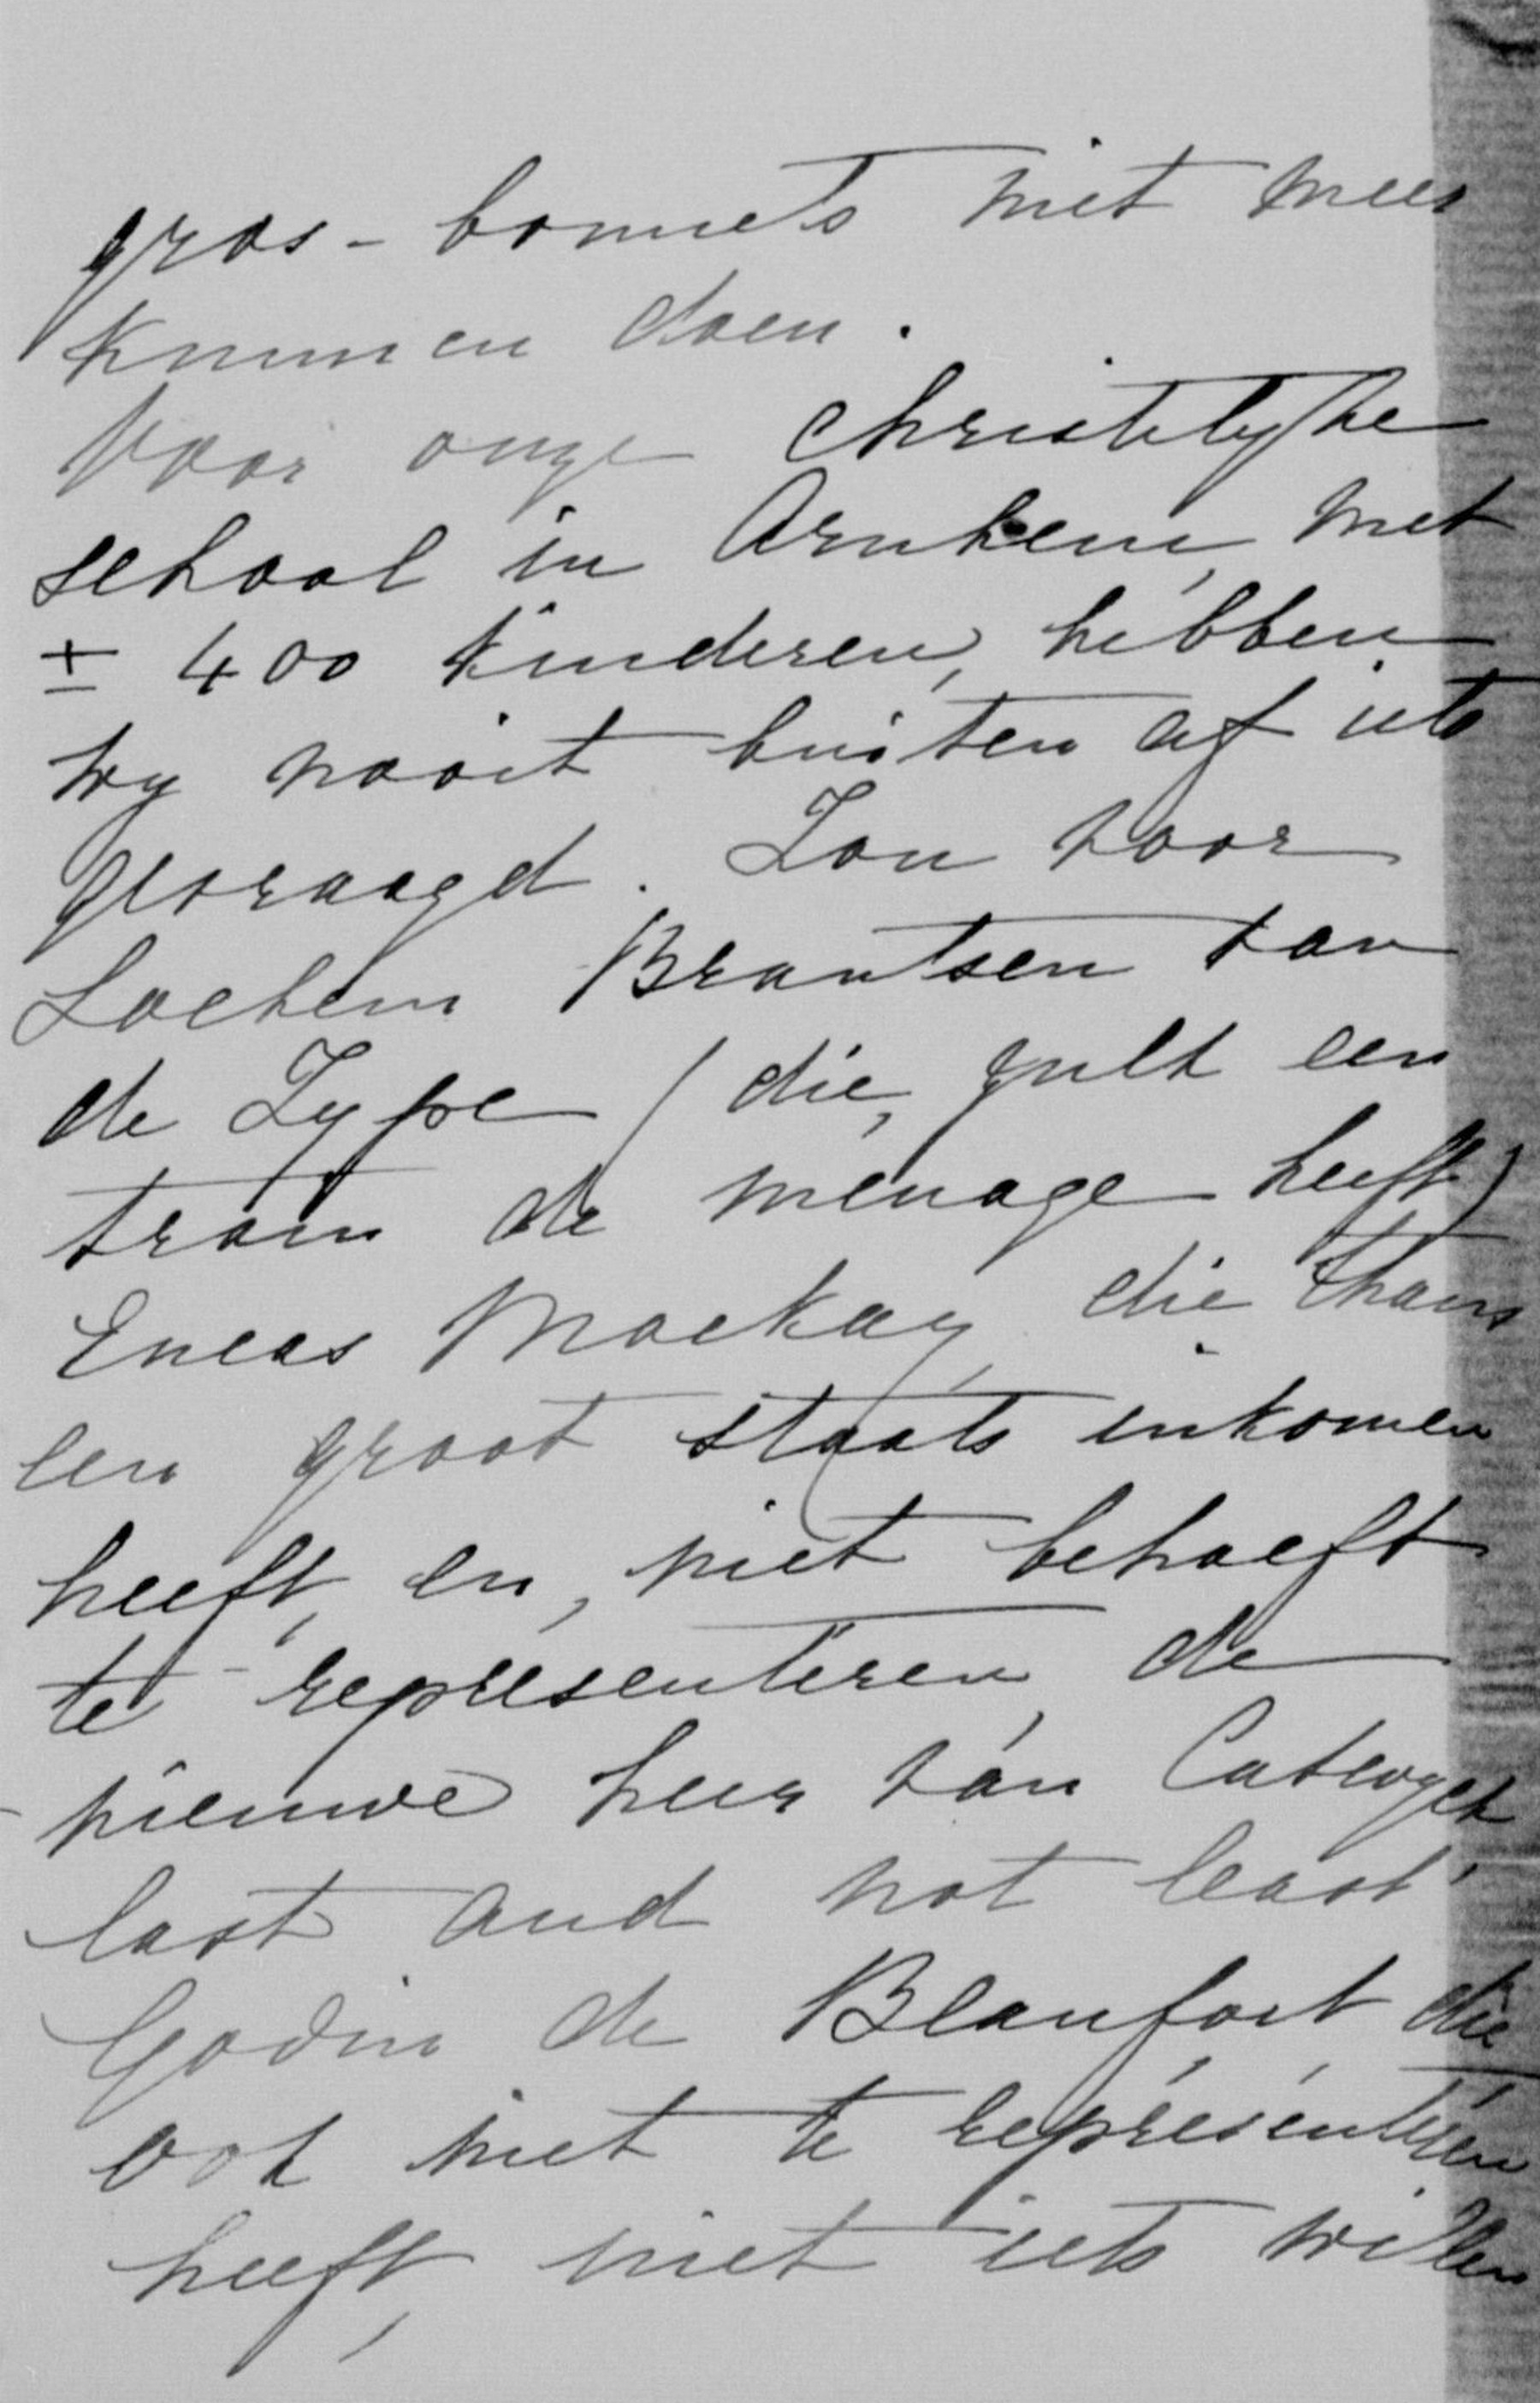 gros-bonnets niet meer
kunnen doen.
Voor onze Christelyke
school in Arnhem, met
± 400 kinderen, hebben
wy nooit buiten af iets
gevraagd. Zou voor
Lochem Brantsen van
de Zype (die, zulk een
train de ménage heeft)
Eneas Mackay, die thans
een groot staats inkomen
heeft, en, niet behoeft
te representeren, de
nieuwe heer van
last and not least
Godin de Beaufort die
ook niet te representeren
heeft, niet iets willen